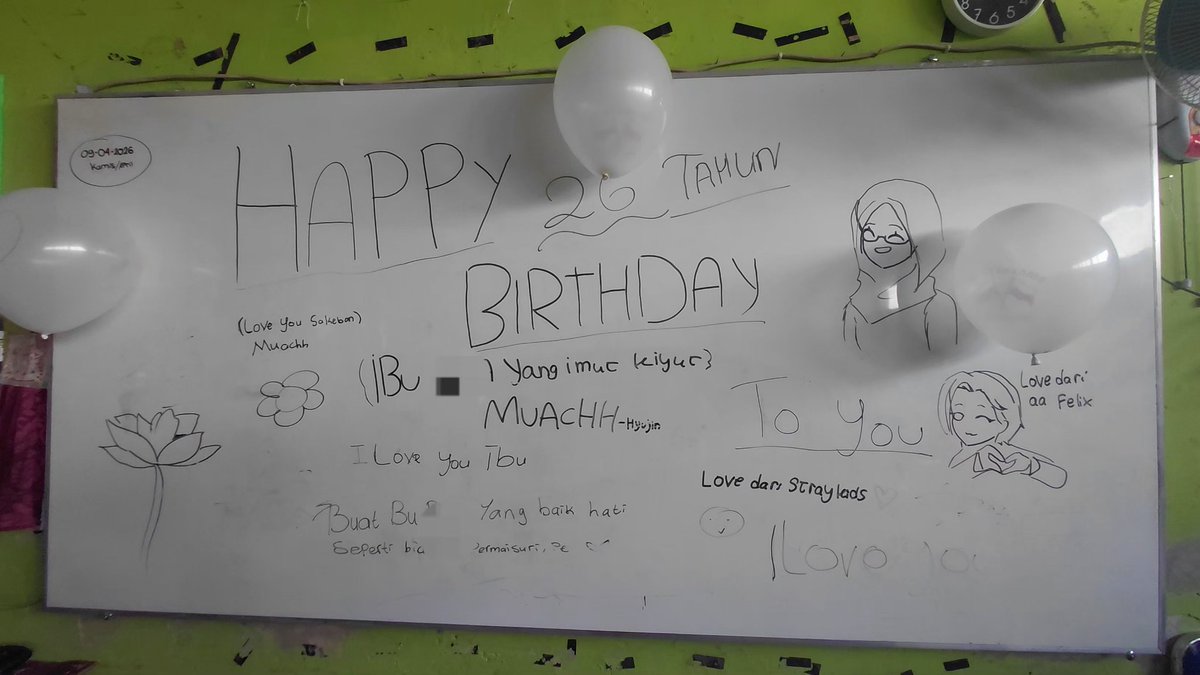 09-04-2026
HAPPY 26 TAHUN
BIRTHDAY
(Love You Sakebon)
Muachh
(IBu ) Yang imut kiyut}
MUACHH-Hyujin
To You
Love dari
aa Felix
I Love you Ibu
Love dari Straylads
Buat Bu Yang baik hati
Seperti bia ermaisuri,
I Lovo you
8 7 6 5 4